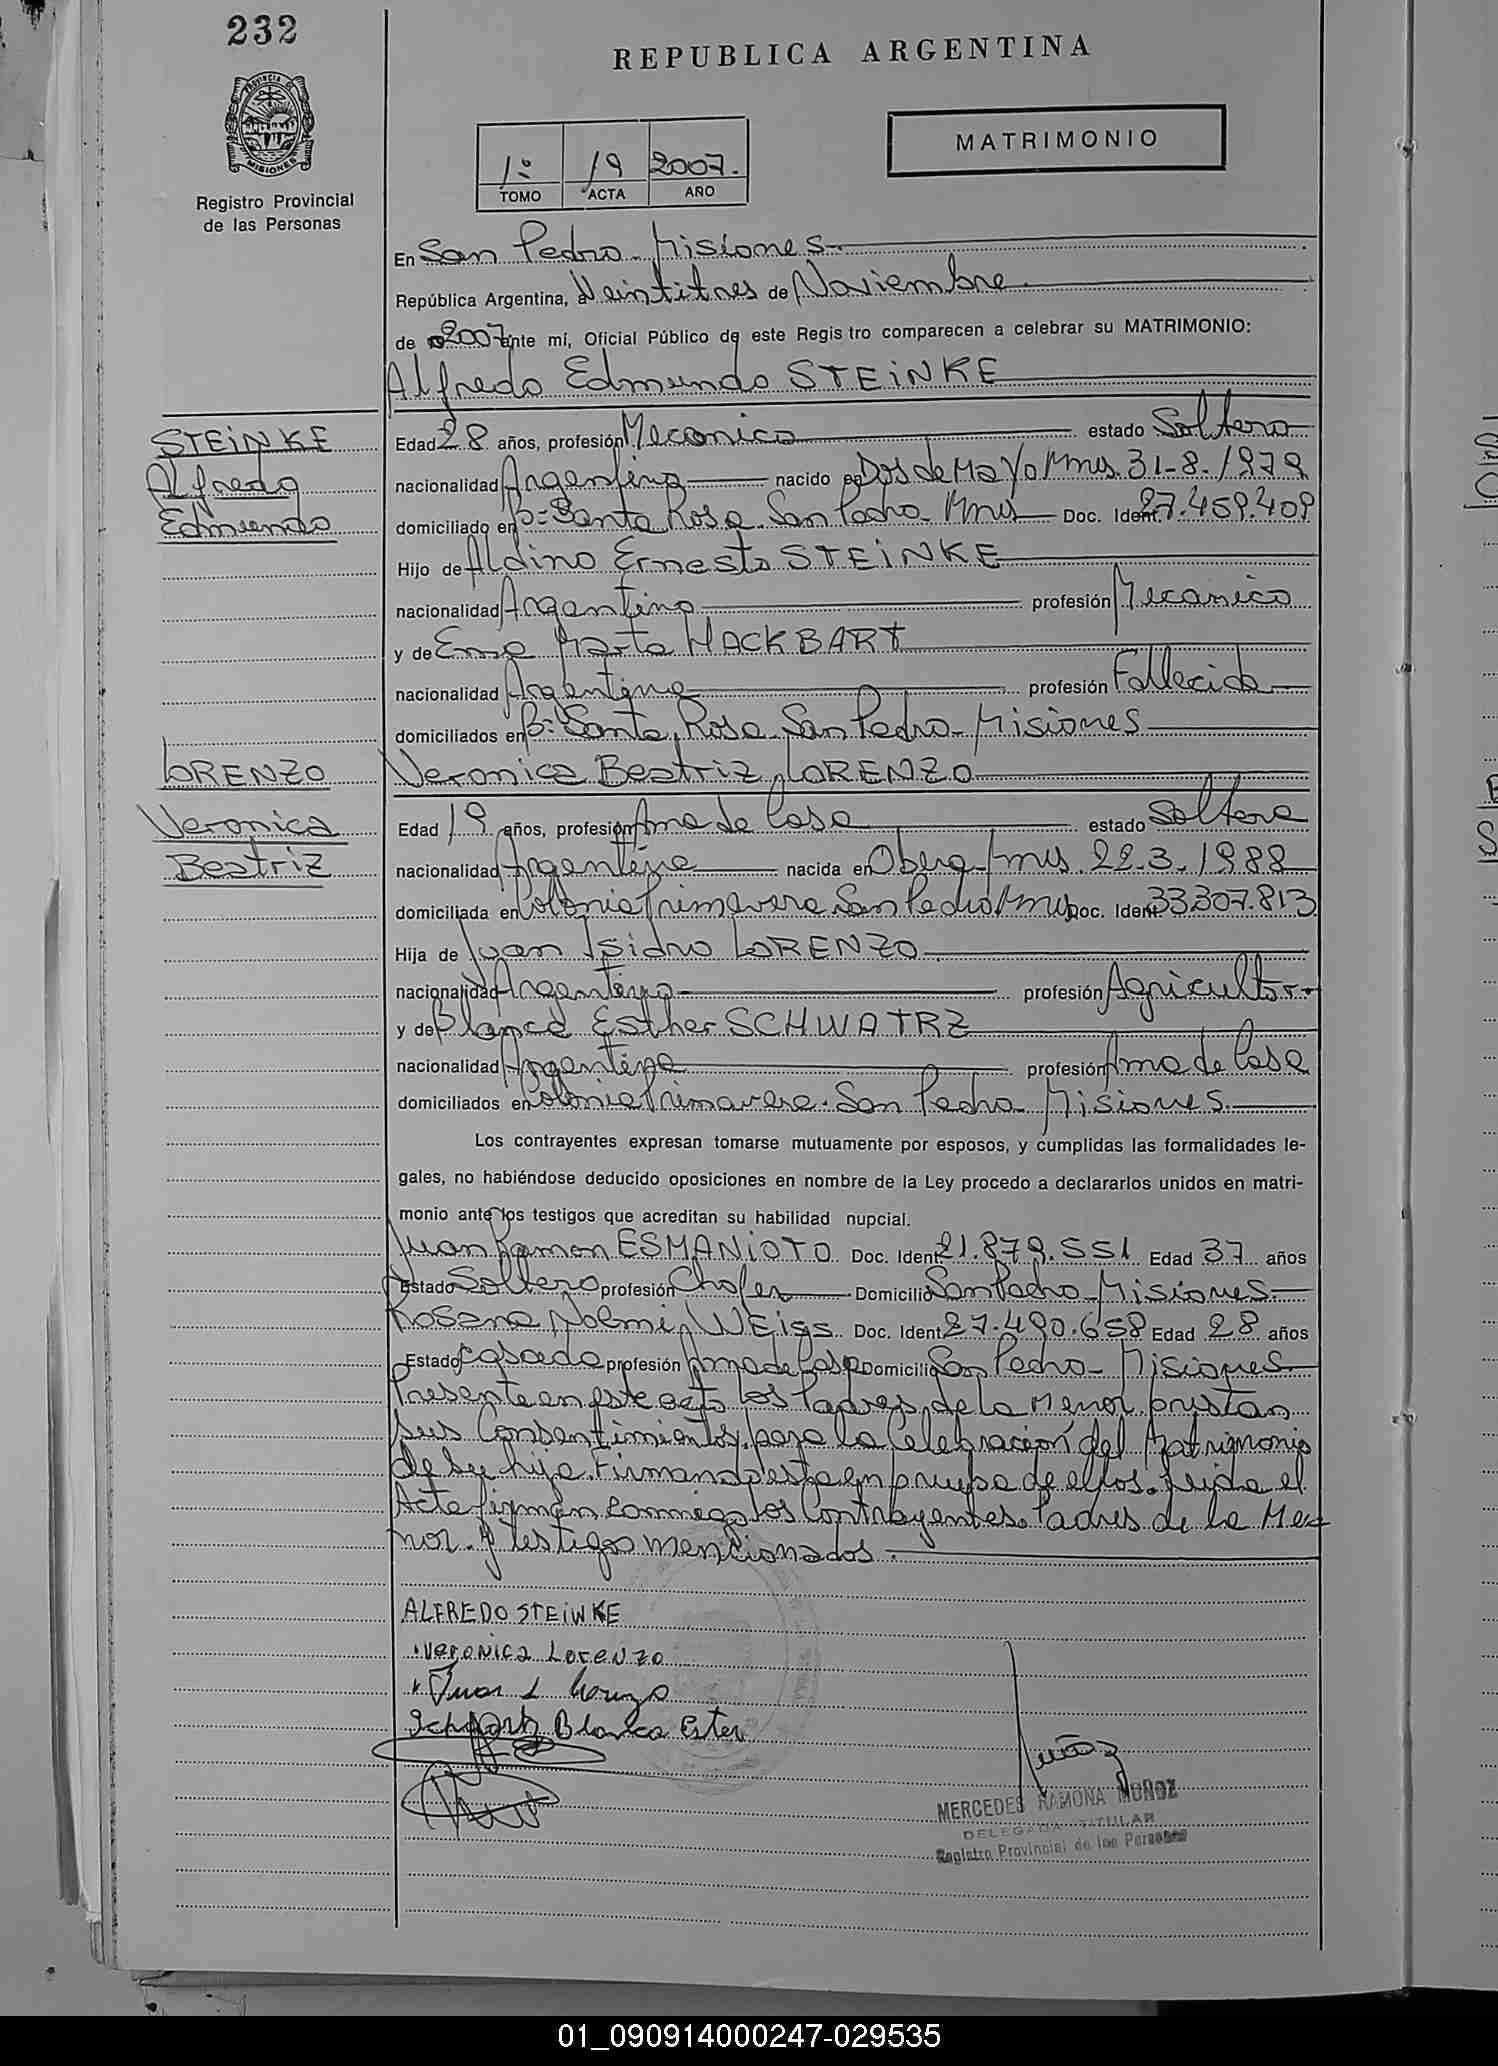 232
REPUBLICA ARGENTINA
PROVINCIA DE
MISIONES
MATRIMONIO
1º 19 2007.
TOMO ACTA AÑO
Registro Provincial
de las Personas
En San Pedro - Misiones.-
República Argentina, a Veintitres de Noviembre
de 2007 ante mí, Oficial Público de este Registro comparecen a celebrar su MATRIMONIO:
Alfredo Edmundo STEINKE
STEINKE
Alfredo
Edmundo
Edad 28 años, profesión Mecanico estado Soltero
nacionalidad Argentino nacido en Dos de Mayo Mnes. 31-8-1979
domiciliado en Bº Santa Rosa. San Pedro - Mnes Doc. Ident. 27.459.409
Hijo de Aldino Ernesto STEINKE
nacionalidad Argentino profesión Mecanico
y de Ema Marta HACKBART
nacionalidad Argentina profesión Fallecida
domiciliados en Bº Santa Rosa. San Pedro - Misiones
LORENZO
Veronica
Beatriz
Veronica Beatriz LORENZO
Edad 19 años, profesión Ama de Casa estado Soltera
nacionalidad Argentina nacida en Obera - Mnes. 22-3-1988
domiciliada en Colonia Primavera San Pedro Mnes Doc. Ident. 33.307.813
Hija de Juan Isidro LORENZO
nacionalidad Argentino profesión Agricultor
y de Blanca Esther SCHWATRZ
nacionalidad Argentina profesión Ama de Casa
domiciliados en Colonia Primavera. San Pedro - Misiones.
Los contrayentes expresan tomarse mutuamente por esposos, y cumplidas las formalidades le-
gales, no habiéndose deducido oposiciones en nombre de la Ley procedo a declararlos unidos en matri-
monio ante los testigos que acreditan su habilidad nupcial.
Juan Ramon ESMANIOTO Doc. Ident. 21.879.551 Edad 37 años
Estado Soltero profesión Chofer Domicilio San Pedro - Misiones.
Rosana Noemi WEISS Doc. Ident. 27.490.658 Edad 28 años
Estado Casada profesión Ama de Casa Domicilio San Pedro - Misiones.
Presente en este acto los Padres de la Menor prestan
sus Consentimientos para la Celebracion del Matrimonio
de su hija. Firmando esta en prueba de ellos. Leida el
Acta firman conmigo los Contrayentes. Padres de la Me-
nor. y testigos mencionados.
ALFREDO STEINKE
Veronica Lorenzo
Juan I Lorenzo
Schwartz Blanca Ester
Muñoz
MERCEDES RAMONA MUÑOZ
DELEGADA TITULAR
Registro Provincial de las Personas
01_090914000247-029535